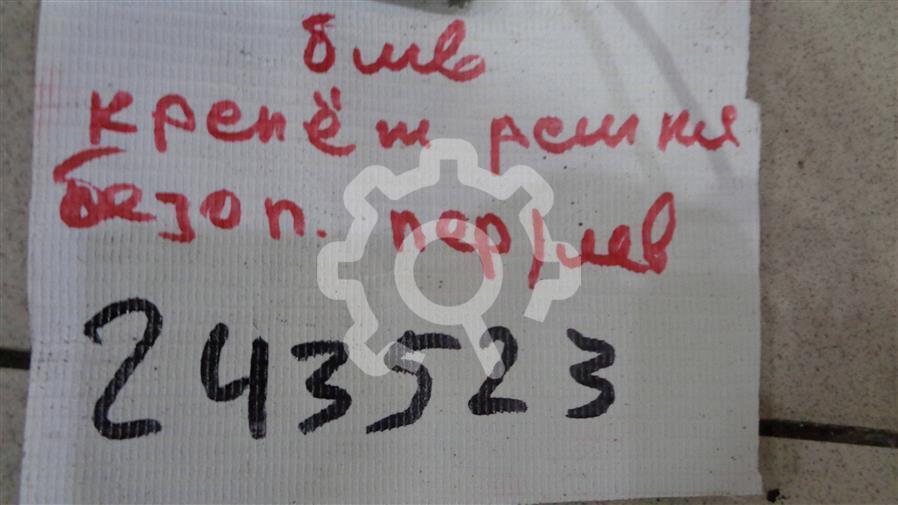 бмв
крепёж ремня
безоп. пер/лев
243523